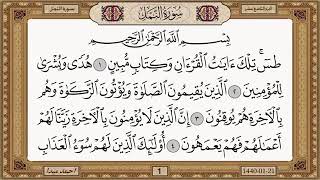 الجزء التاسع عشر
سُورَةُ النَّمْلِ
سورة النمل
بِسْمِ اللَّهِ الرَّحْمَٰنِ الرَّحِيمِ
طسٓ ۚ تِلْكَ ءَايَٰتُ الْقُرْءَانِ وَكِتَابٍ مُّبِينٍ ١ هُدًى وَبُشْرَىٰ
لِلْمُؤْمِنِينَ ٢ الَّذِينَ يُقِيمُونَ الصَّلَوٰةَ وَيُؤْتُونَ الزَّكَوٰةَ وَهُم
بِالْءَاخِرَةِ هُمْ يُوقِنُونَ ٣ إِنَّ الَّذِينَ لَا يُؤْمِنُونَ بِالْءَاخِرَةِ زَيَّنَّا لَهُمْ
أَعْمَٰلَهُمْ فَهُمْ يَعْمَهُونَ ٤ أُو۟لَٰٓئِكَ الَّذِينَ لَهُمْ سُوٓءُ الْعَذَابِ
1
1440-01-21